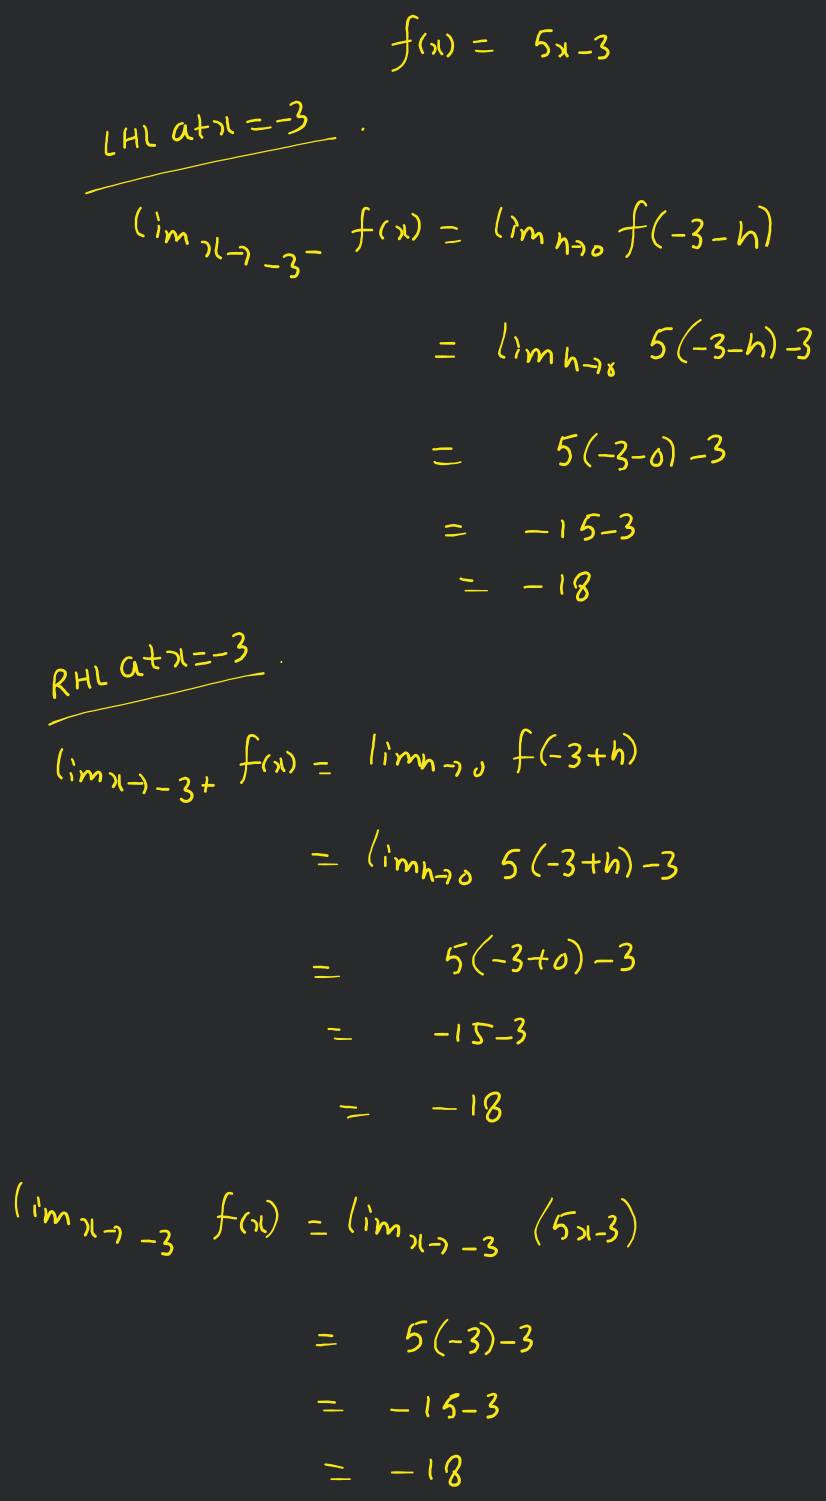 f(x) = 5x-3
LHL at x = -3 .
lim x→ -3⁻ f(x) = lim h→0 f(-3-h)
= lim h→0 5(-3-h)-3
= 5(-3-0)-3
= -15-3
= -18
RHL at x=-3 .
lim x→-3+ f(x) = lim h→0 f(-3+h)
= lim h→0 5(-3+h)-3
= 5(-3+0)-3
= -15-3
= -18
lim x→ -3 f(x) = lim x→ -3 (5x-3)
= 5(-3)-3
= -15-3
= -18